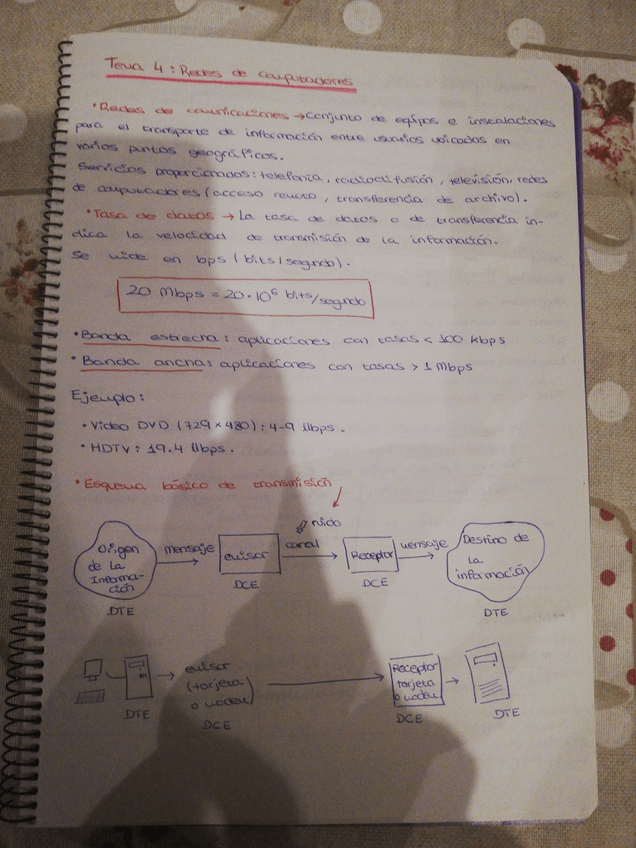 Tema 4: Redes de computadores
• Redes de comunicaciones → Conjunto de equipos e instalaciones
para el transporte de información entre usuarios ubicados en
varios puntos geográficos.
Servicios proporcionados: telefonía, radiodifusión, televisión, redes
de computadores (acceso remoto, transferencia de archivo).
• Tasa de datos → La tasa de datos o de transferencia in-
dica la velocidad de transmisión de la información.
Se mide en bps (bits/segundo).
20 Mbps = 20·10⁶ bits/segundo
• Banda estrecha: aplicaciones con tasas < 100 kbps
• Banda ancha: aplicaciones con tasas > 1 Mbps
Ejemplo:
• Video DVD (729 × 480): 4-9 Mbps.
• HDTV: 19.4 Mbps.
• Esquema básico de transmisión
ruido
Origen de la Informa-ción
mensaje
emisor
canal
Receptor
mensaje
Destino de la información
DTE
DCE
DCE
DTE
emisor
(tarjeta
o modem)
Receptor
tarjeta
o modem
DTE
DCE
DCE
DTE